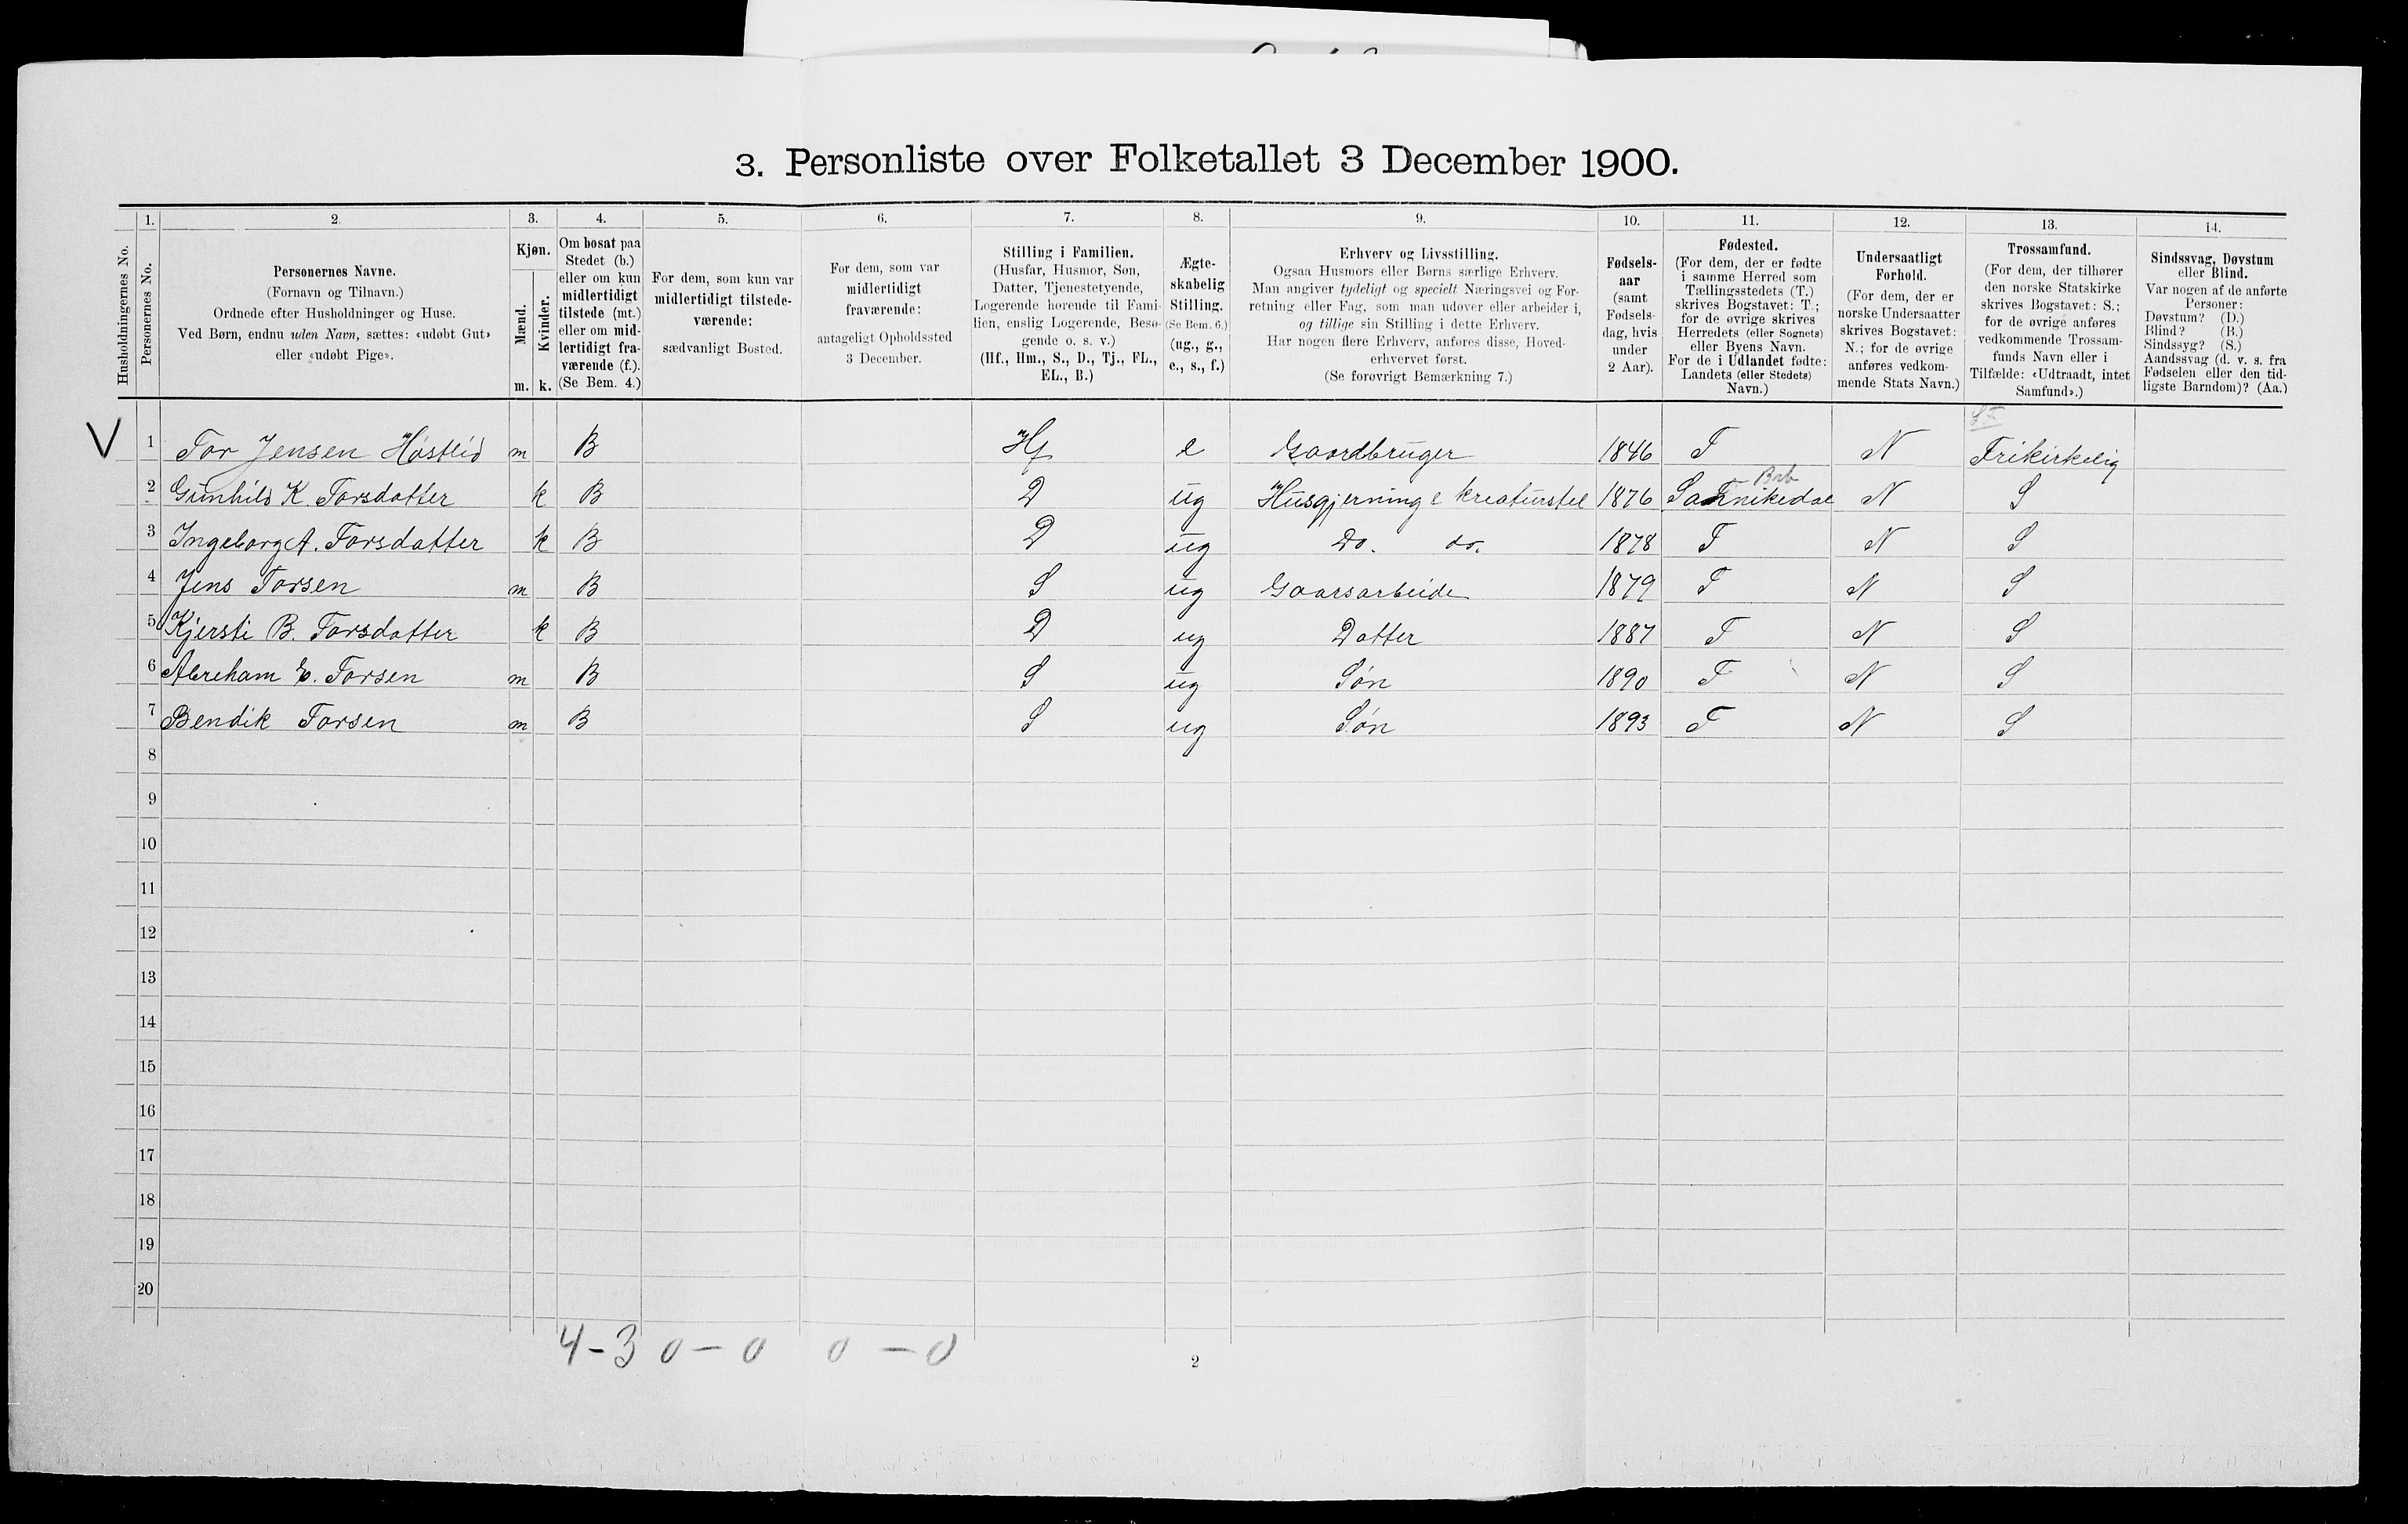 3. Personliste over Folketallet 3 December 1900.
1. 2. 3. 4. 5. 6. 7. 8. 9. 10. 11. 12. 13. 14.
Husholdningernes No.
Personernes No.
Personernes Navne.
(Fornavn og Tilnavn.)
Ordnede efter Husholdninger og Huse.
Ved Børn, endnu uden Navn, sættes: «udøbt Gut»
eller «udøbt Pige».
Kjøn.
Mænd.
Kvinder.
m. k.
Om bosat paa
Stedet (b.)
eller om kun
midlertidigt
tilstede (mt.)
eller om mid-
lertidigt fra-
værende (f.).
(Se Bem. 4.)
For dem, som kun var
midlertidigt tilstede-
værende:
sædvanligt Bosted.
For dem, som var
midlertidigt
fraværende:
antageligt Opholdssted
3 December.
Stilling i Familien.
(Husfar, Husmor, Søn,
Datter, Tjenestetyende,
Logerende hørende til Fami-
lien, enslig Logerende, Besø-
gende o. s. v.)
(Hf., Hm., S., D., Tj., FL.,
EL., B.)
Ægte-
skabelig
Stilling.
(Se Bem. 6.)
(ug., g.,
e., s., f.)
Erhverv og Livsstilling.
Ogsaa Husmors eller Børns særlige Erhverv.
Man angiver tydeligt og specielt Næringsvei og For-
retning eller Fag, som man udøver eller arbeider i,
og tillige sin Stilling i dette Erhverv.
Har nogen flere Erhverv, anføres disse, Hoved-
erhvervet først.
(Se forøvrigt Bemærkning 7.)
Fødsels-
aar
(samt
Fødsels-
dag, hvis
under
2 Aar).
Fødested.
(For dem, der er fødte
i samme Herred som
Tællingsstedets (T.)
skrives Bogstavet: T.;
for de øvrige skrives
Herredets (eller Sognets)
eller Byens Navn.
For de i Udlandet fødte:
Landets (eller Stedets)
Navn.)
Undersaatligt
Forhold.
(For dem, der er
norske Undersaatter
skrives Bogstavet:
N.; for de øvrige
anføres vedkom-
mende Stats Navn.)
Trossamfund.
(For dem, der tilhører
den norske Statskirke
skrives Bogstavet: S.;
for de øvrige anføres
vedkommende Trossam-
funds Navn eller i
Tilfælde: «Udtraadt, intet
Samfund».)
Sindssvag, Døvstum
eller Blind.
Var nogen af de anførte
Personer:
Døvstum? (D.)
Blind? (B.)
Sindssyg? (S.)
Aandssvag (d. v. s. fra
Fødselen eller den tid-
ligste Barndom)? (Aa.)
V 1 Tor Jensen Høstlid m B Hf e Gaardbruger 1846 T N Frikirkelig
2 Gunhild K. Torsdatter k B D ug Husgjerning & Kreaturstel 1876 N S
3 Ingeborg A. Torsdatter k B D ug Do. do. 1878 T N S
4 Jens Torsen m B S ug Gaarsarbeide 1879 T N S
5 Kjersti B. Torsdatter k B D ug Datter 1887 T N S
6 Abreham E. Torsen m B S ug Søn 1890 T N S
7 Bendik Torsen m B S ug Søn 1893 T N S
8
9
10
11
12
13
14
15
16
17
18
19
20
4-3 0-0 0-0
2